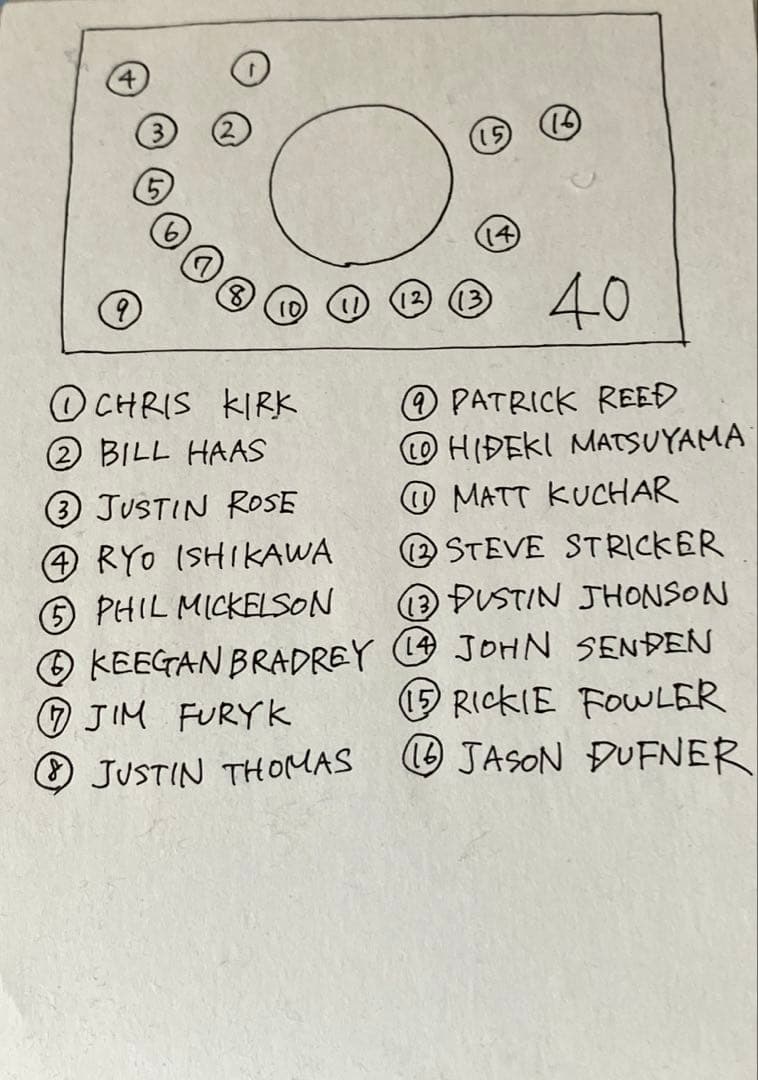 ④ ①
③ ② ⑮ ⑯
⑤
⑥ ⑭
⑦
⑨ ⑧ ⑩ ⑪ ⑫ ⑬ 40
① CHRIS KIRK
② BILL HAAS
③ JUSTIN ROSE
④ RYO ISHIKAWA
⑤ PHIL MICKELSON
⑥ KEEGAN BRADREY
⑦ JIM FURYK
⑧ JUSTIN THOMAS
⑨ PATRICK REED
⑩ HIDEKI MATSUYAMA
⑪ MATT KUCHAR
⑫ STEVE STRICKER
⑬ DUSTIN JHONSON
⑭ JOHN SENDEN
⑮ RICKIE FOWLER
⑯ JASON DUFNER